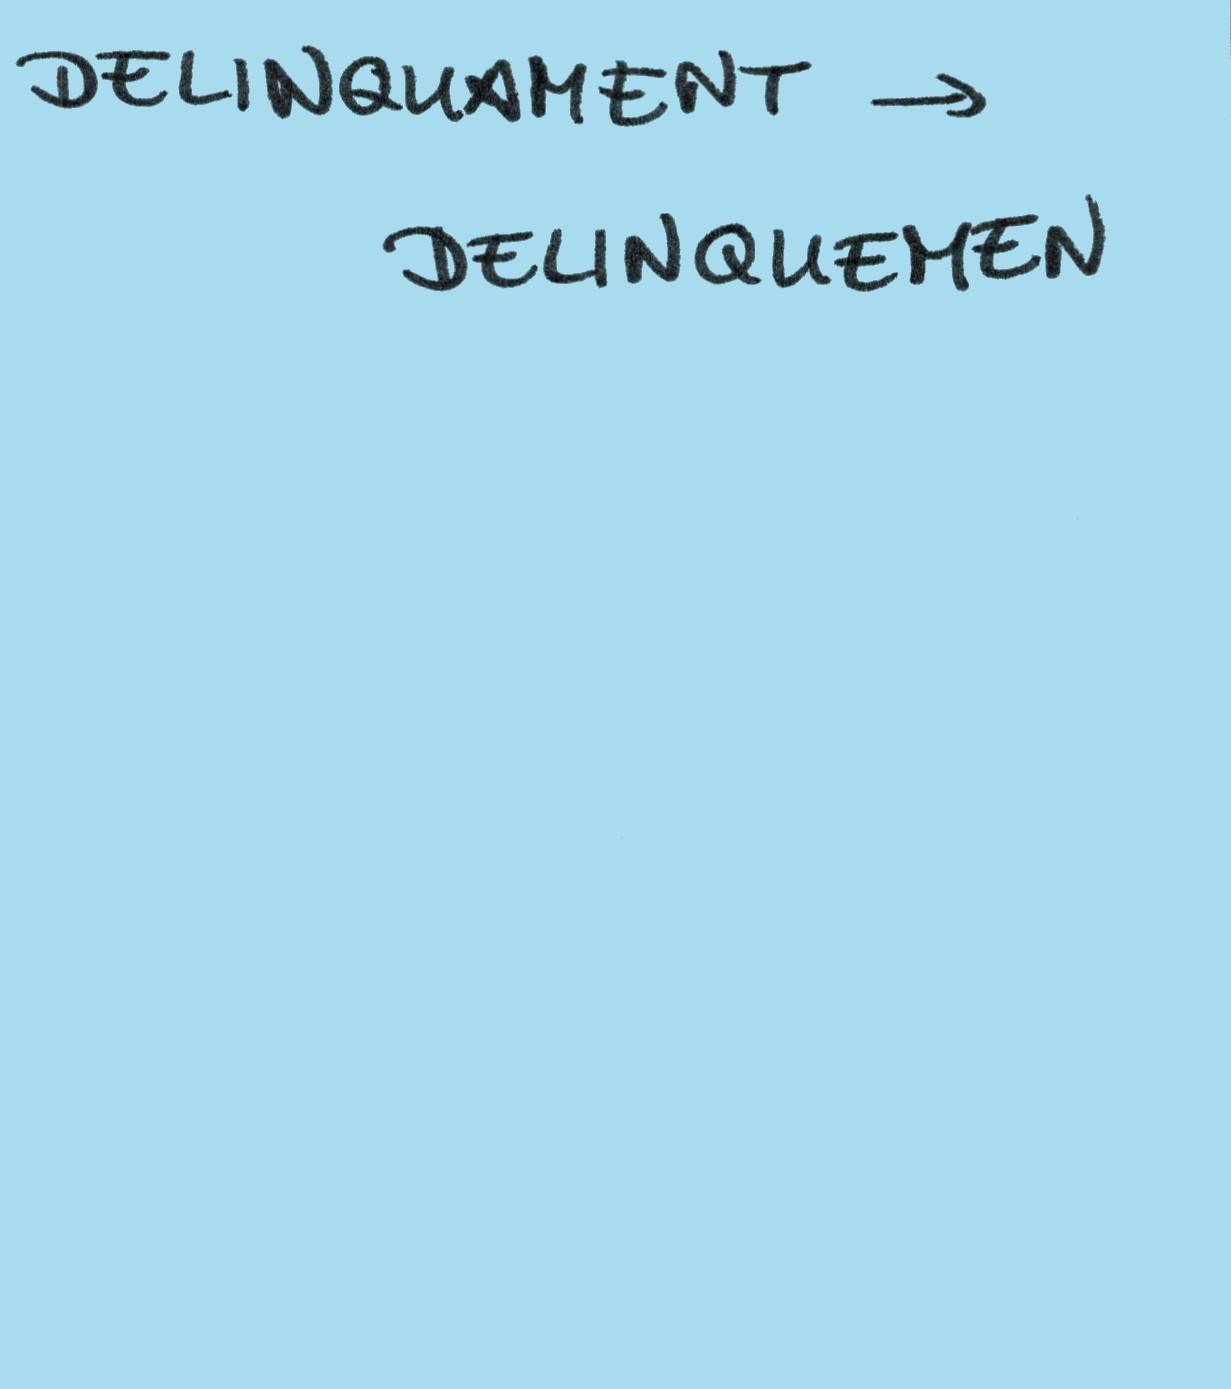 DELINQUAMENT →
DELINQUEMEN